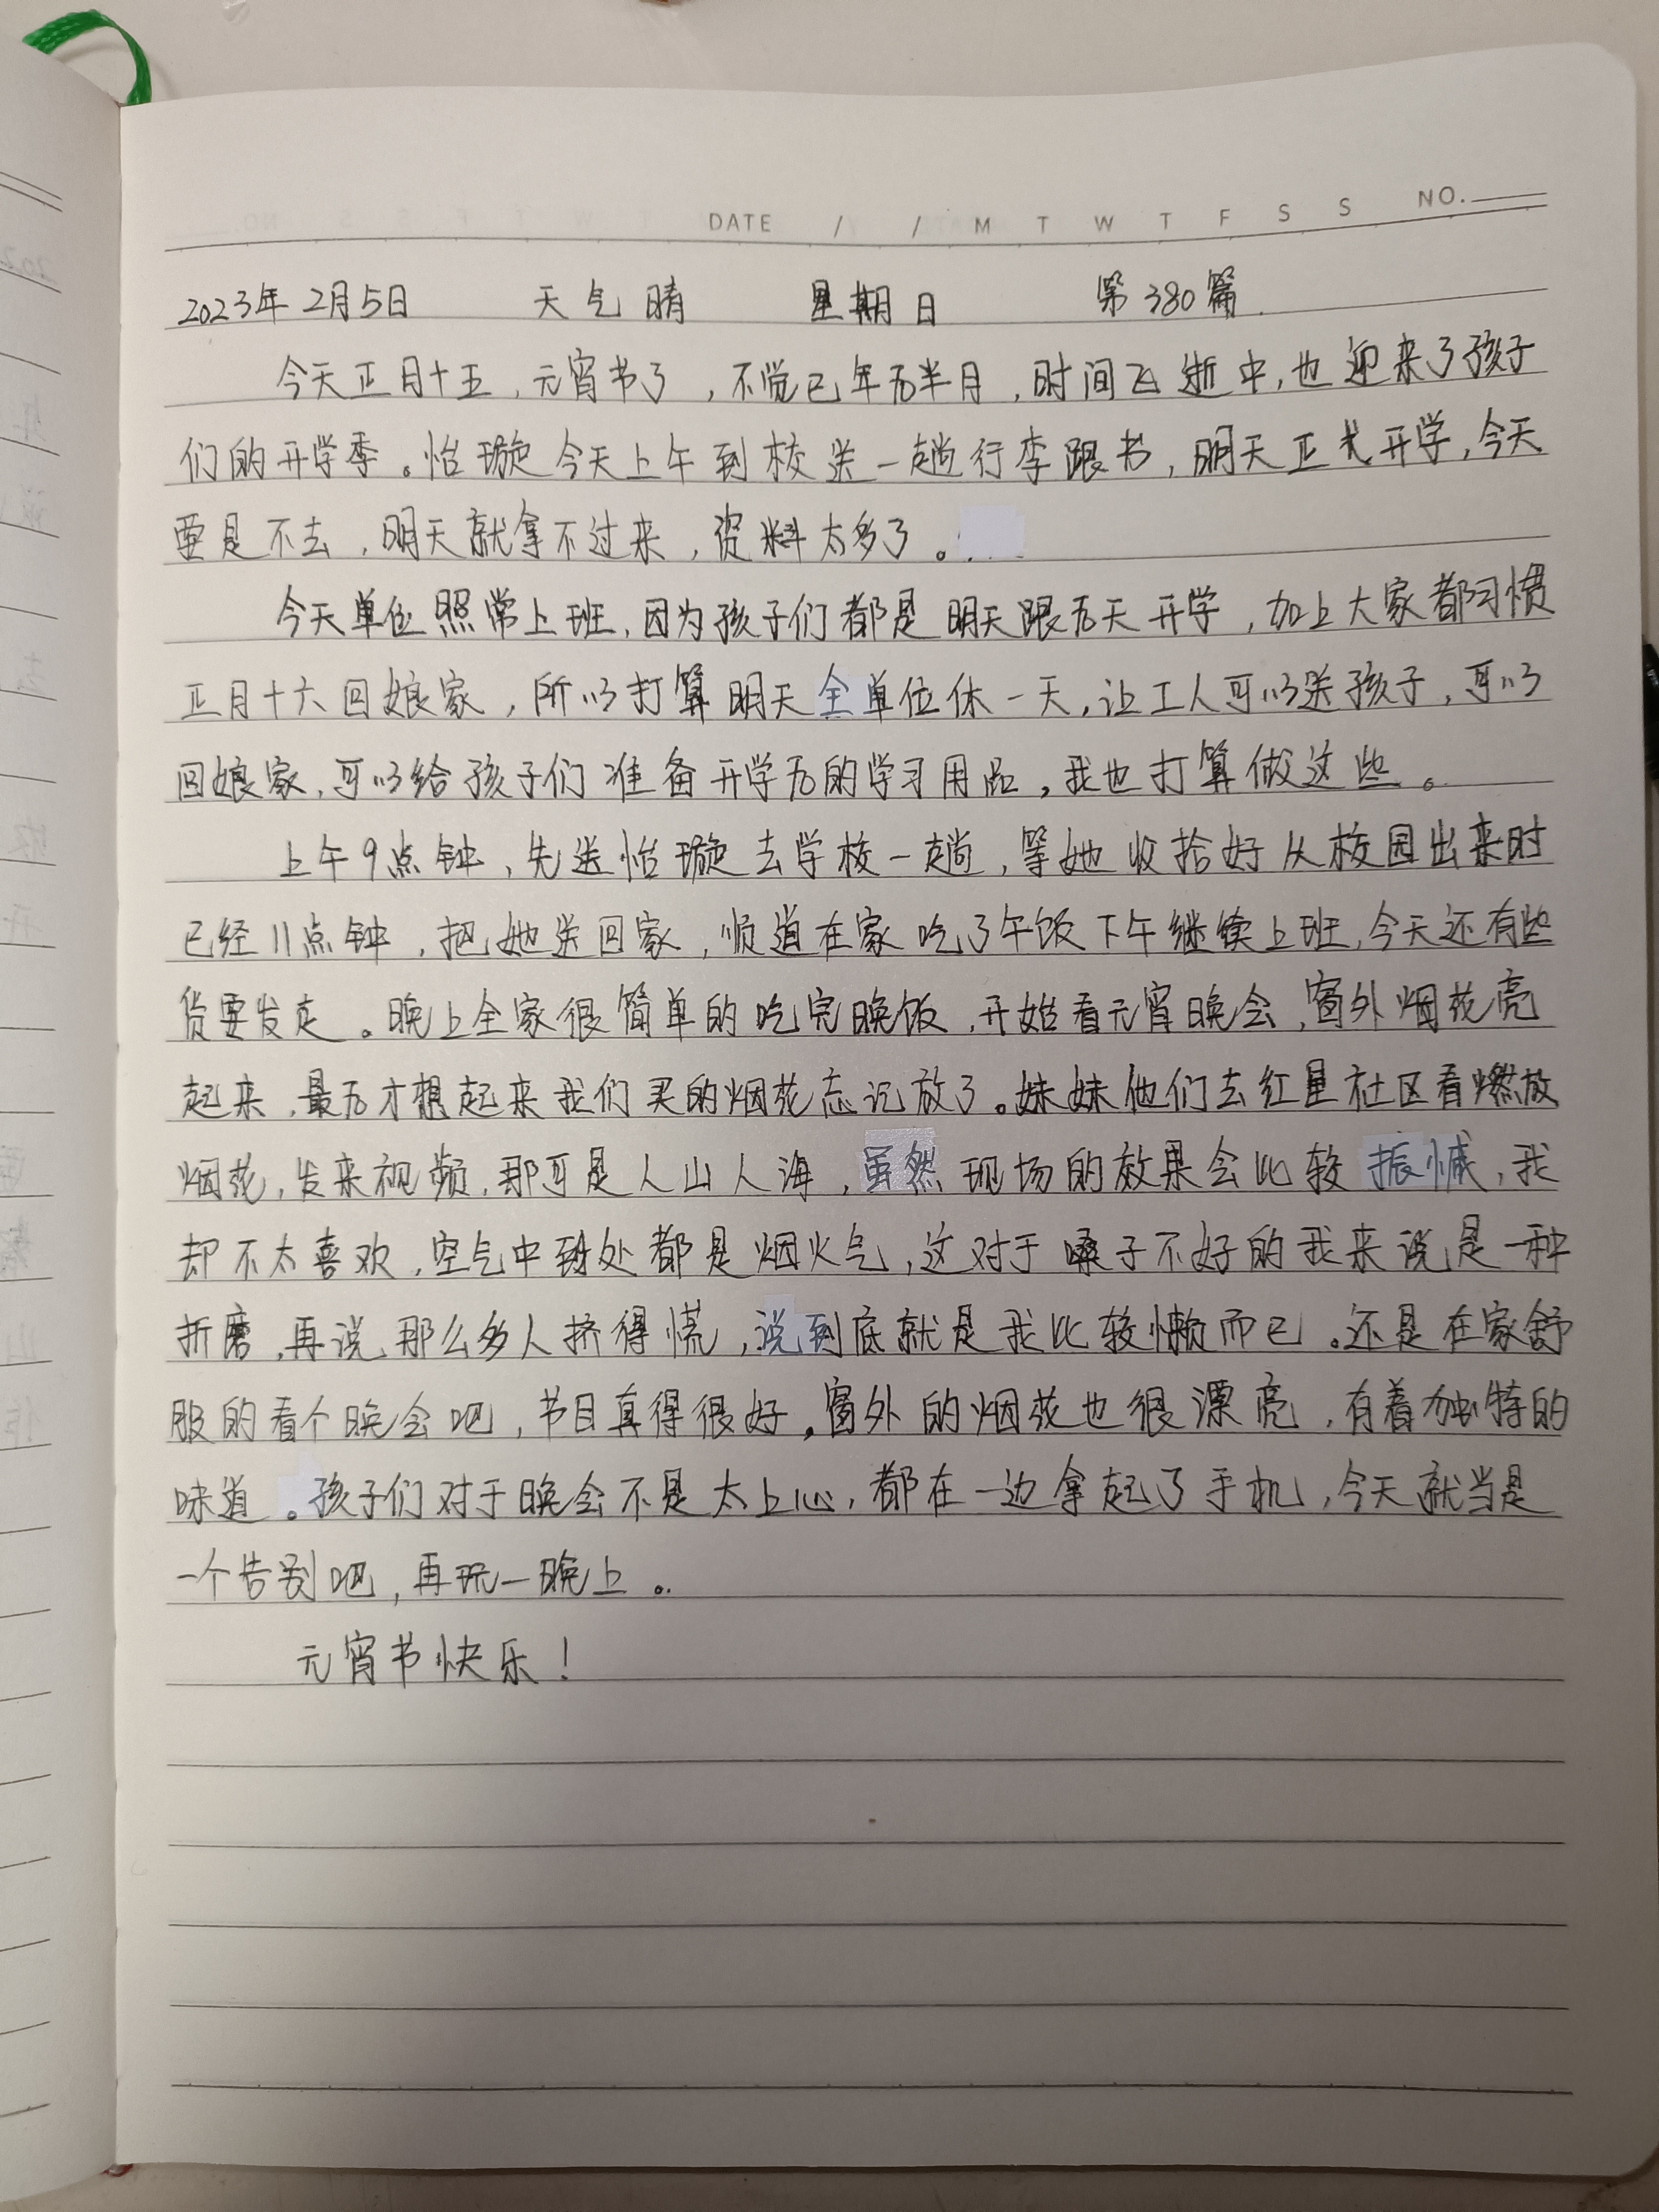 DATE / / M T W T F S S NO.
2023年2月5日 天气 晴 星期日 第380篇
今天正月十五,元宵节了,不觉已年后半月,时间飞逝中,也迎来了孩子
们的开学季。怡璇今天上午到校送一趟行李跟书,明天正式开学,今天
要是不去,明天就拿不过来,资料太多了。
今天单位照常上班,因为孩子们都是明天跟后天开学,加上大家都习惯
正月十六回娘家,所以打算明天全单位休一天,让工人可以送孩子,可以
回娘家,可以给孩子们准备开学后的学习用品,我也打算做这些。
上午9点钟,先送怡璇去学校一趟,等她收拾好从校园出来时
已经11点钟,把她送回家,顺道在家吃了午饭下午继续上班,今天还有些
货要发走。晚上全家很简单的吃完晚饭,开始看元宵晚会,窗外烟花亮
起来,最后才想起来我们买的烟花忘记放了。妹妹他们去红星社区看燃放
烟花,发来视频,那可是人山人海,虽然现场的效果会比较振憾,我
却不太喜欢,空气中到处都是烟火气,这对于嗓子不好的我来说是一种
折磨,再说,那么多人挤得慌,说到底就是我比较懒而已。还是在家舒
服的看个晚会吧,节目真得很好,窗外的烟花也很漂亮,有着独特的
味道。孩子们对于晚会不是太上心,都在一边拿起了手机,今天就当是
一个告别吧,再玩一晚上。
元宵节快乐!